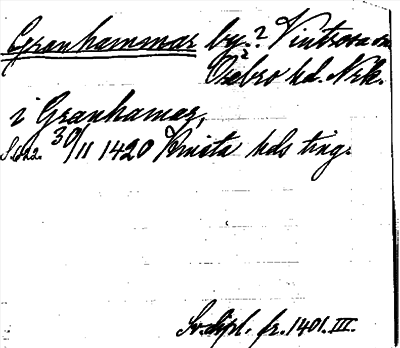 Granhammar by.? Vintrosa sn
Örebro hd. Nrk.
i Granhamar,
S. 622. 30/11 1420 hds ting.
Sv. dipl. fr. 1401. III.